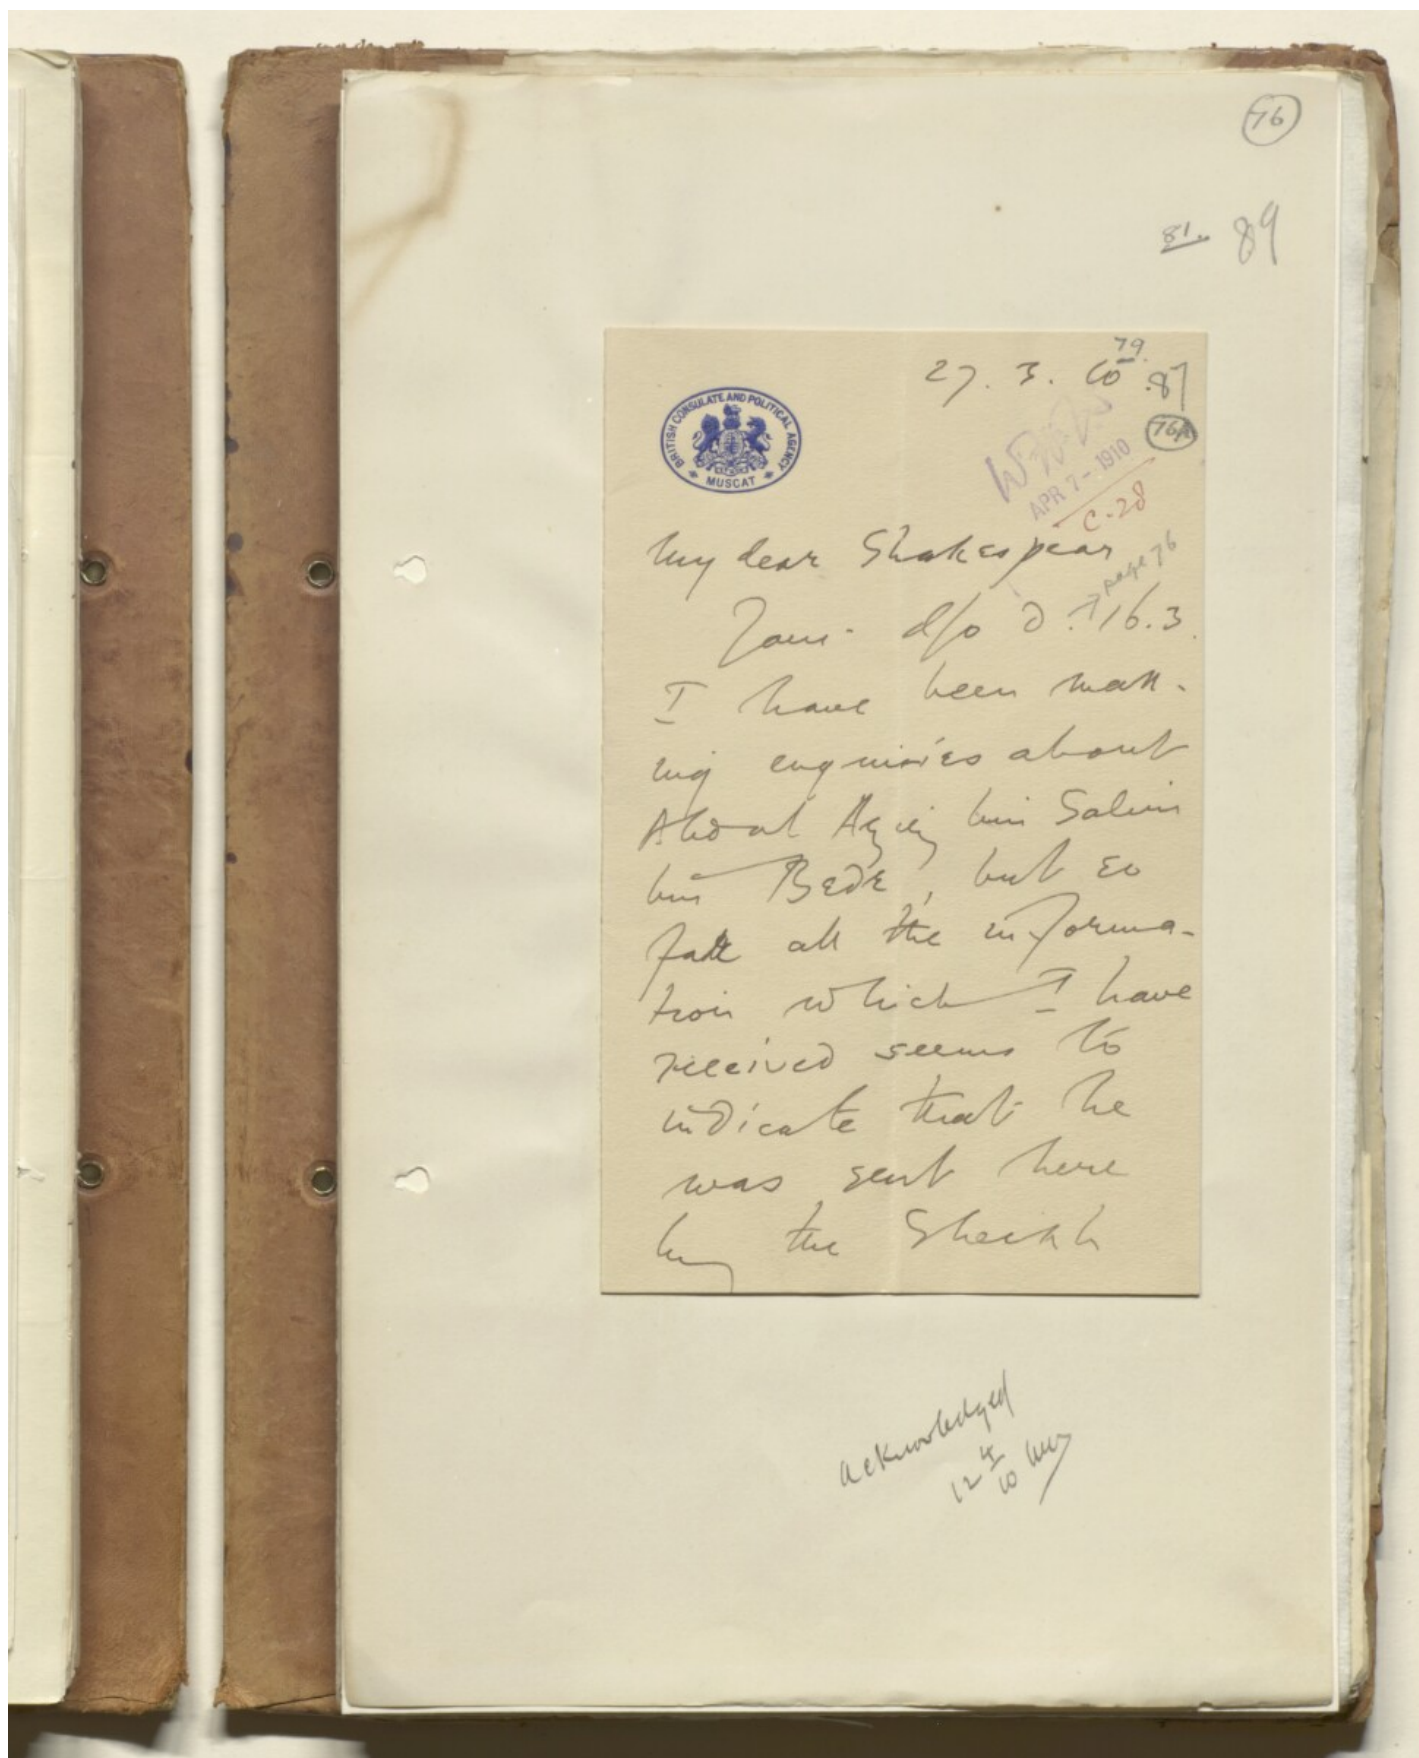 76
81. 89
79.
27. 3. 10 87
76A
BRITISH CONSULATE AND POLITICAL AGENCY
MUSCAT
APR 7 - 1910
C-28
My dear Shakespear
page 76
Your d/o d. 16.3.
I have been mak-
ing enquiries about
Abdul Aziz bin Salim
bin Bedr, but so
far all the informa-
tion which I have
received seems to
indicate that he
was sent here
by the Sheikh
Acknowledged
12 4/10